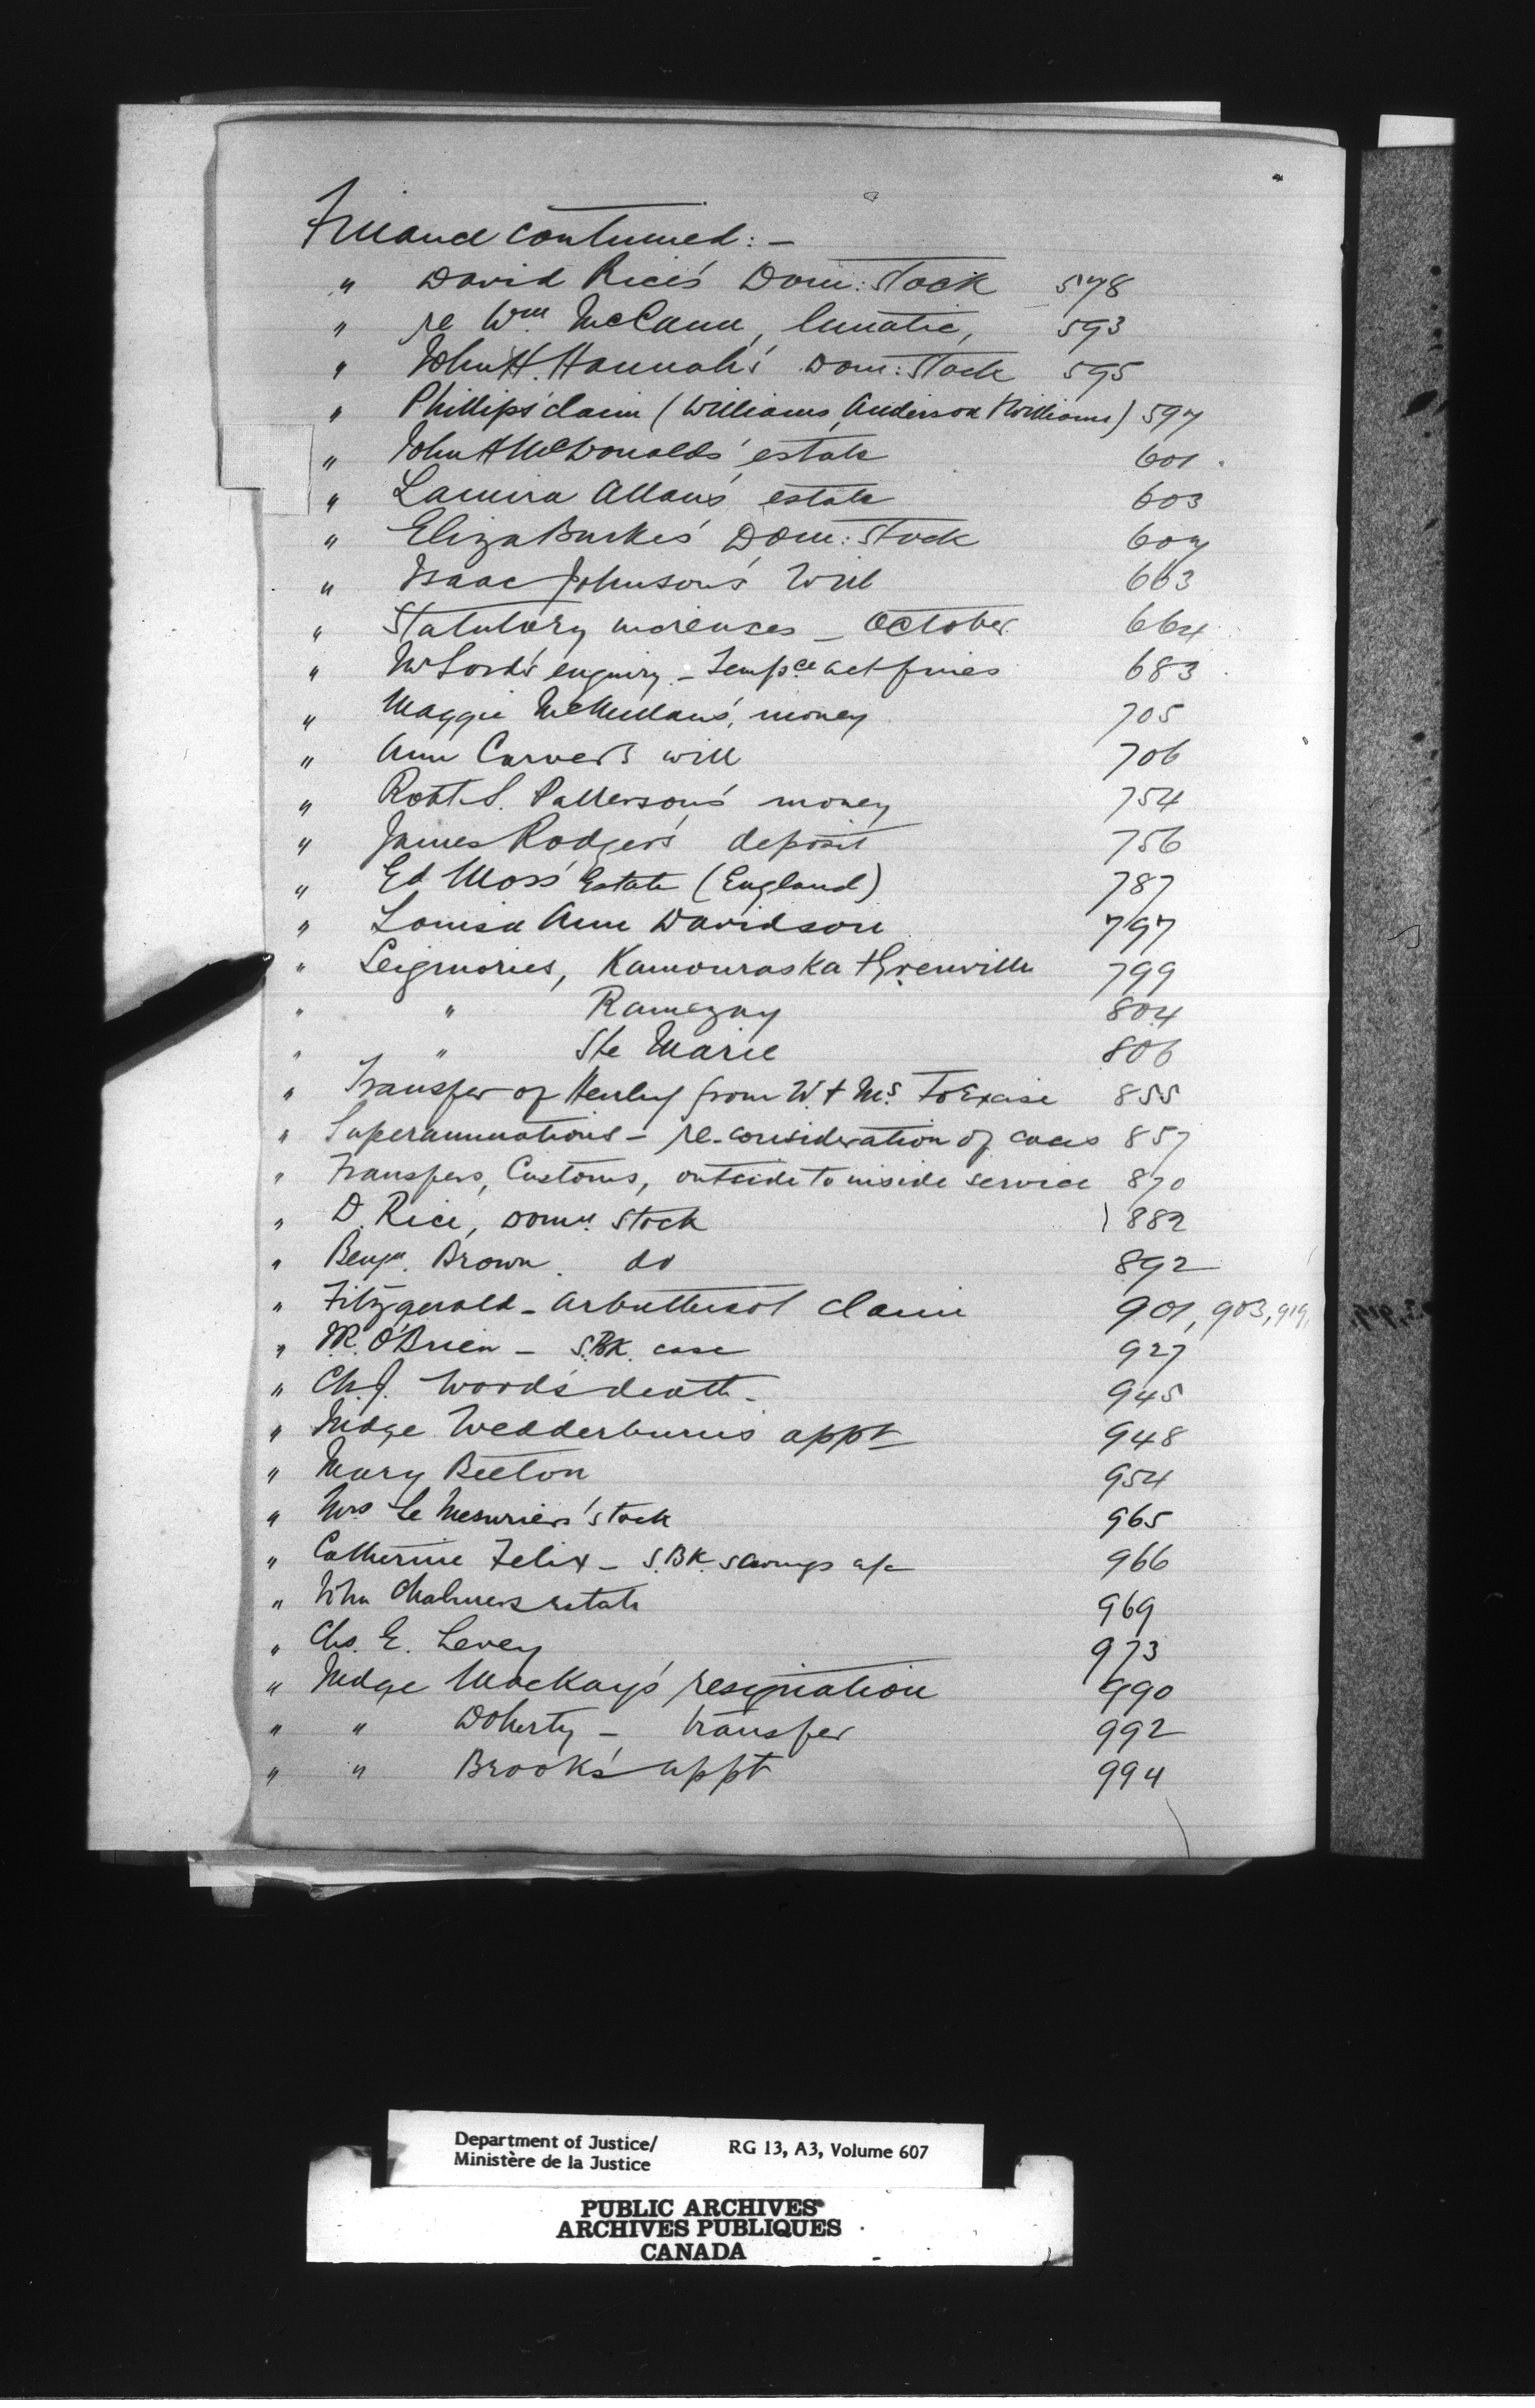 Finance continued: –
" David Rice's Dom: Stock 578
" re Wm McCann, lunatic, 593
" John H. Hannah's Dom: Stock 595
" Phillips' claim (Williams, Anderson & Williams) 597
" John A McDonald's estate 601
" Lamira Allan's estate 603
" Eliza Burke's Dom: Stock 607
" Isaac Johnson's Will 663
" Statutory increases – October 664
" Mr Lord's enquiry – Tempce act fines 683
" Maggie McMullan's money 705
" Ann Carver's will 706
" Robt. S. Patterson's money 754
" James Rodger's deposit 756
" Ed Moss' Estate (England) 787
" Louisa Ann Davidson 797
" Seigniories, Kamouraska & Grenville 799
" " Ramezay 804
" " Ste Marie 806
" Transfer of Henley from W. & Ms. to Excise 855
" Superannuations – re-consideration of cases 857
" Transfers, Customs, outside to inside service 870
" D. Rice, Domn. Stock 882
" Benjn. Brown. do 892
" Fitzgerald – Arbuthnot claim 901, 903, 919,
" O'Brien – S.BK. case 927
" Ch. J. Wood's death – 945
" Judge Wedderburn's appt 948
" Mary Beeton 954
" Mrs Le Mesurier's stock 965
" Catherine Felix – S.BK. savings a/c 966
" John Chalmers estate 969
" Chs. E. Levey 973
" Judge MacKay's resignation 990
" " Doherty – transfer 992
" " Brook's appt 994
Department of Justice/ RG 13, A3, Volume 607
Ministère de la Justice
PUBLIC ARCHIVES
ARCHIVES PUBLIQUES
CANADA